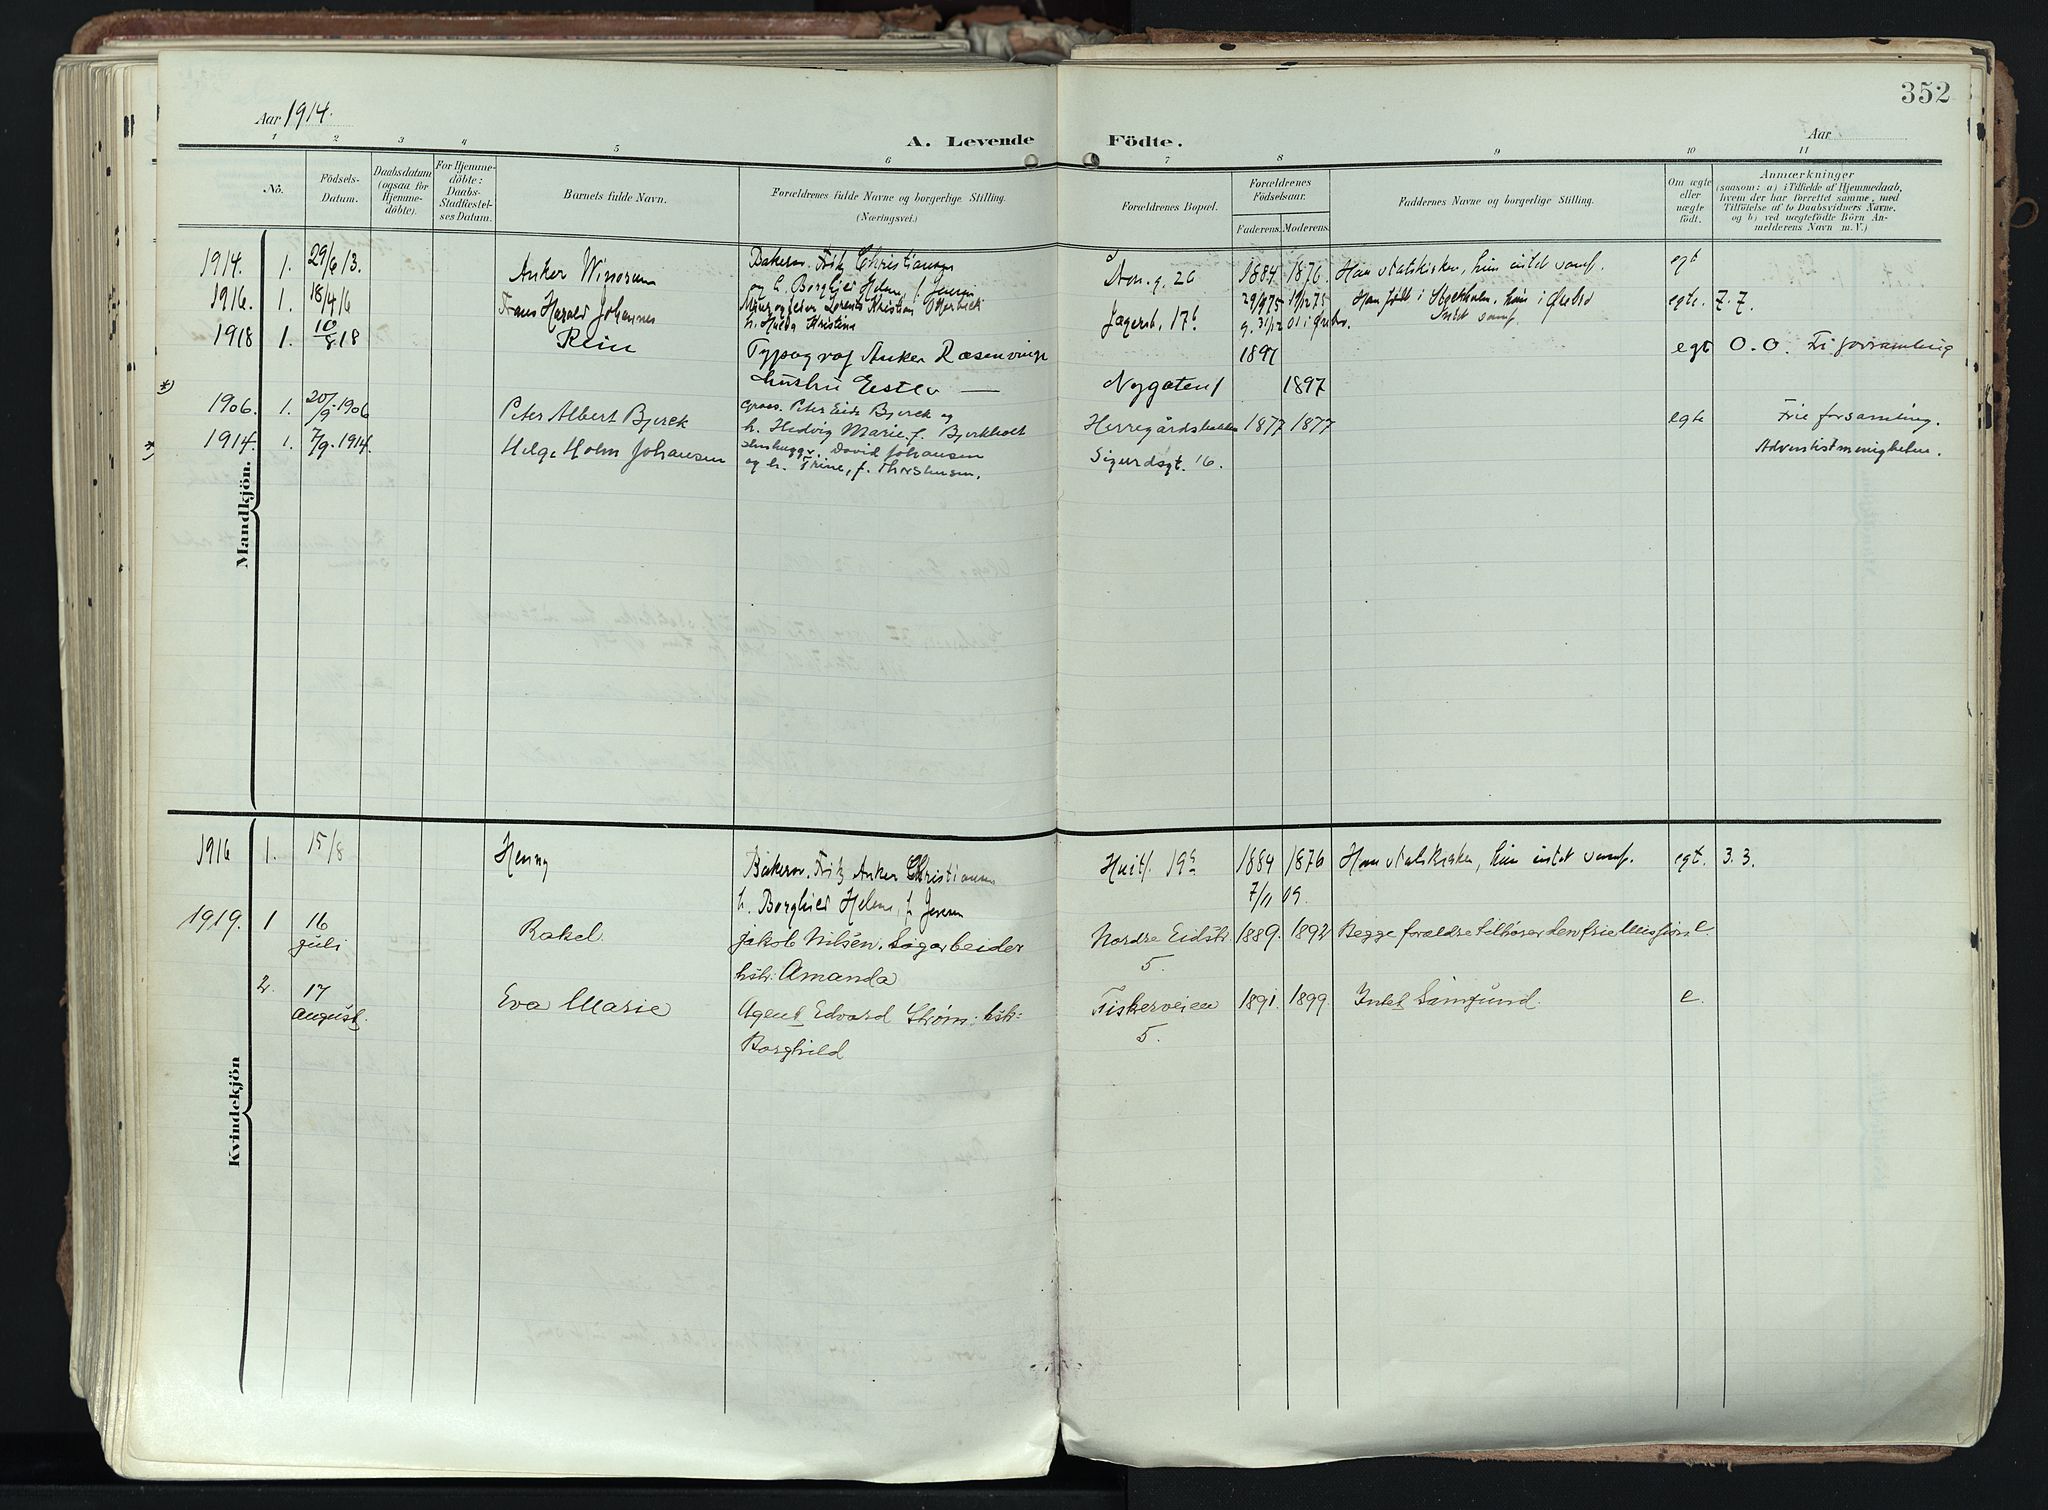 352
Aar 1914.
A. Levende Födte.
Aar
1 2 3 4 5 6 7 8 9 10 11
No.
Födsels-Datum.
Daabsdatum (ogsaa for Hjemmedöbte).
For Hjemmedöbte: Daabs-Stadfestelses Datum.
Barnets fulde Navn.
Forældrenes fulde Navne og borgerlige Stilling. (Næringsvei.)
Forældrenes Bopæl.
Forældrenes Födselsaar.
Faderens. Moderens.
Faddernes Navne og borgerlige Stilling.
Om ægte eller uægte födt.
Anmærkninger
(saasom: a) i Tilfælde af Hjemmedaab, hvem der har forrettet samme, med Tilföielse af to Daabsvidners Navne, og b) ved uægtefödte Börn Anmelderens Navn m. V.)
Mandkjön.
1914. 1. 29/6 13. Anker Bakersv. Fritz Christiansen Dron. g. 26 1884 1876 Han statskirken, hun intet samf. egt
og h. Borghild Helene, f. Jensen
1916. 1. 18/4 16 Frans Harald Johannes Lorents Kristian Jægersb. 17b 29/9 75 19/12 75 Han født i Stockholm, hun i Ørebro egte. 7. 7.
h. Hulda Kristina g. 31/12 01 i Ørebro. Intet samf.
1918 1. 10/8 18 Rein Typograf Anker Ræsenvinge 1897 egt O. O. Fri forsamling
hustru Ester — Nygaten 1 1897
*) 1906. 1. 20/9. 1906 Peter Albert Bjerck Peter Eide Bjerck og Herregårdsbakken 1877 1877 egte Frie forsamling.
h. Hedvig Marie f. Bjerkholt
*) 1914. 1. 7/9. 1914. Helge Holm Johansen Stenhugger David Johansen Sigurdsgt. 16. Adventistmenigheten.
og h. Trine, f. Thorstensen.
Kvindekjön
1916 1. 15/8 Henny Bakersv. Fritz Anker Christiansen Huitf. 19c 1884 1876 Han statskirken, hun intet samf. egt. 3. 3.
h. Borghild Helene, f. Jensen 7/11 09.
1919. 1 16 juli Rakel. Jakob Nilsen, Sagarbeider Nordre Eidstr. 5. 1889. 1892 Begge forældre tilhører den frie Missjon. e.
hstr: Amanda
2. 17 august. Eva Marie Agent Edvard Strøm: hstr: Fiskerveien 5. 1891. 1899. Intet Samfund. e.
Borghild